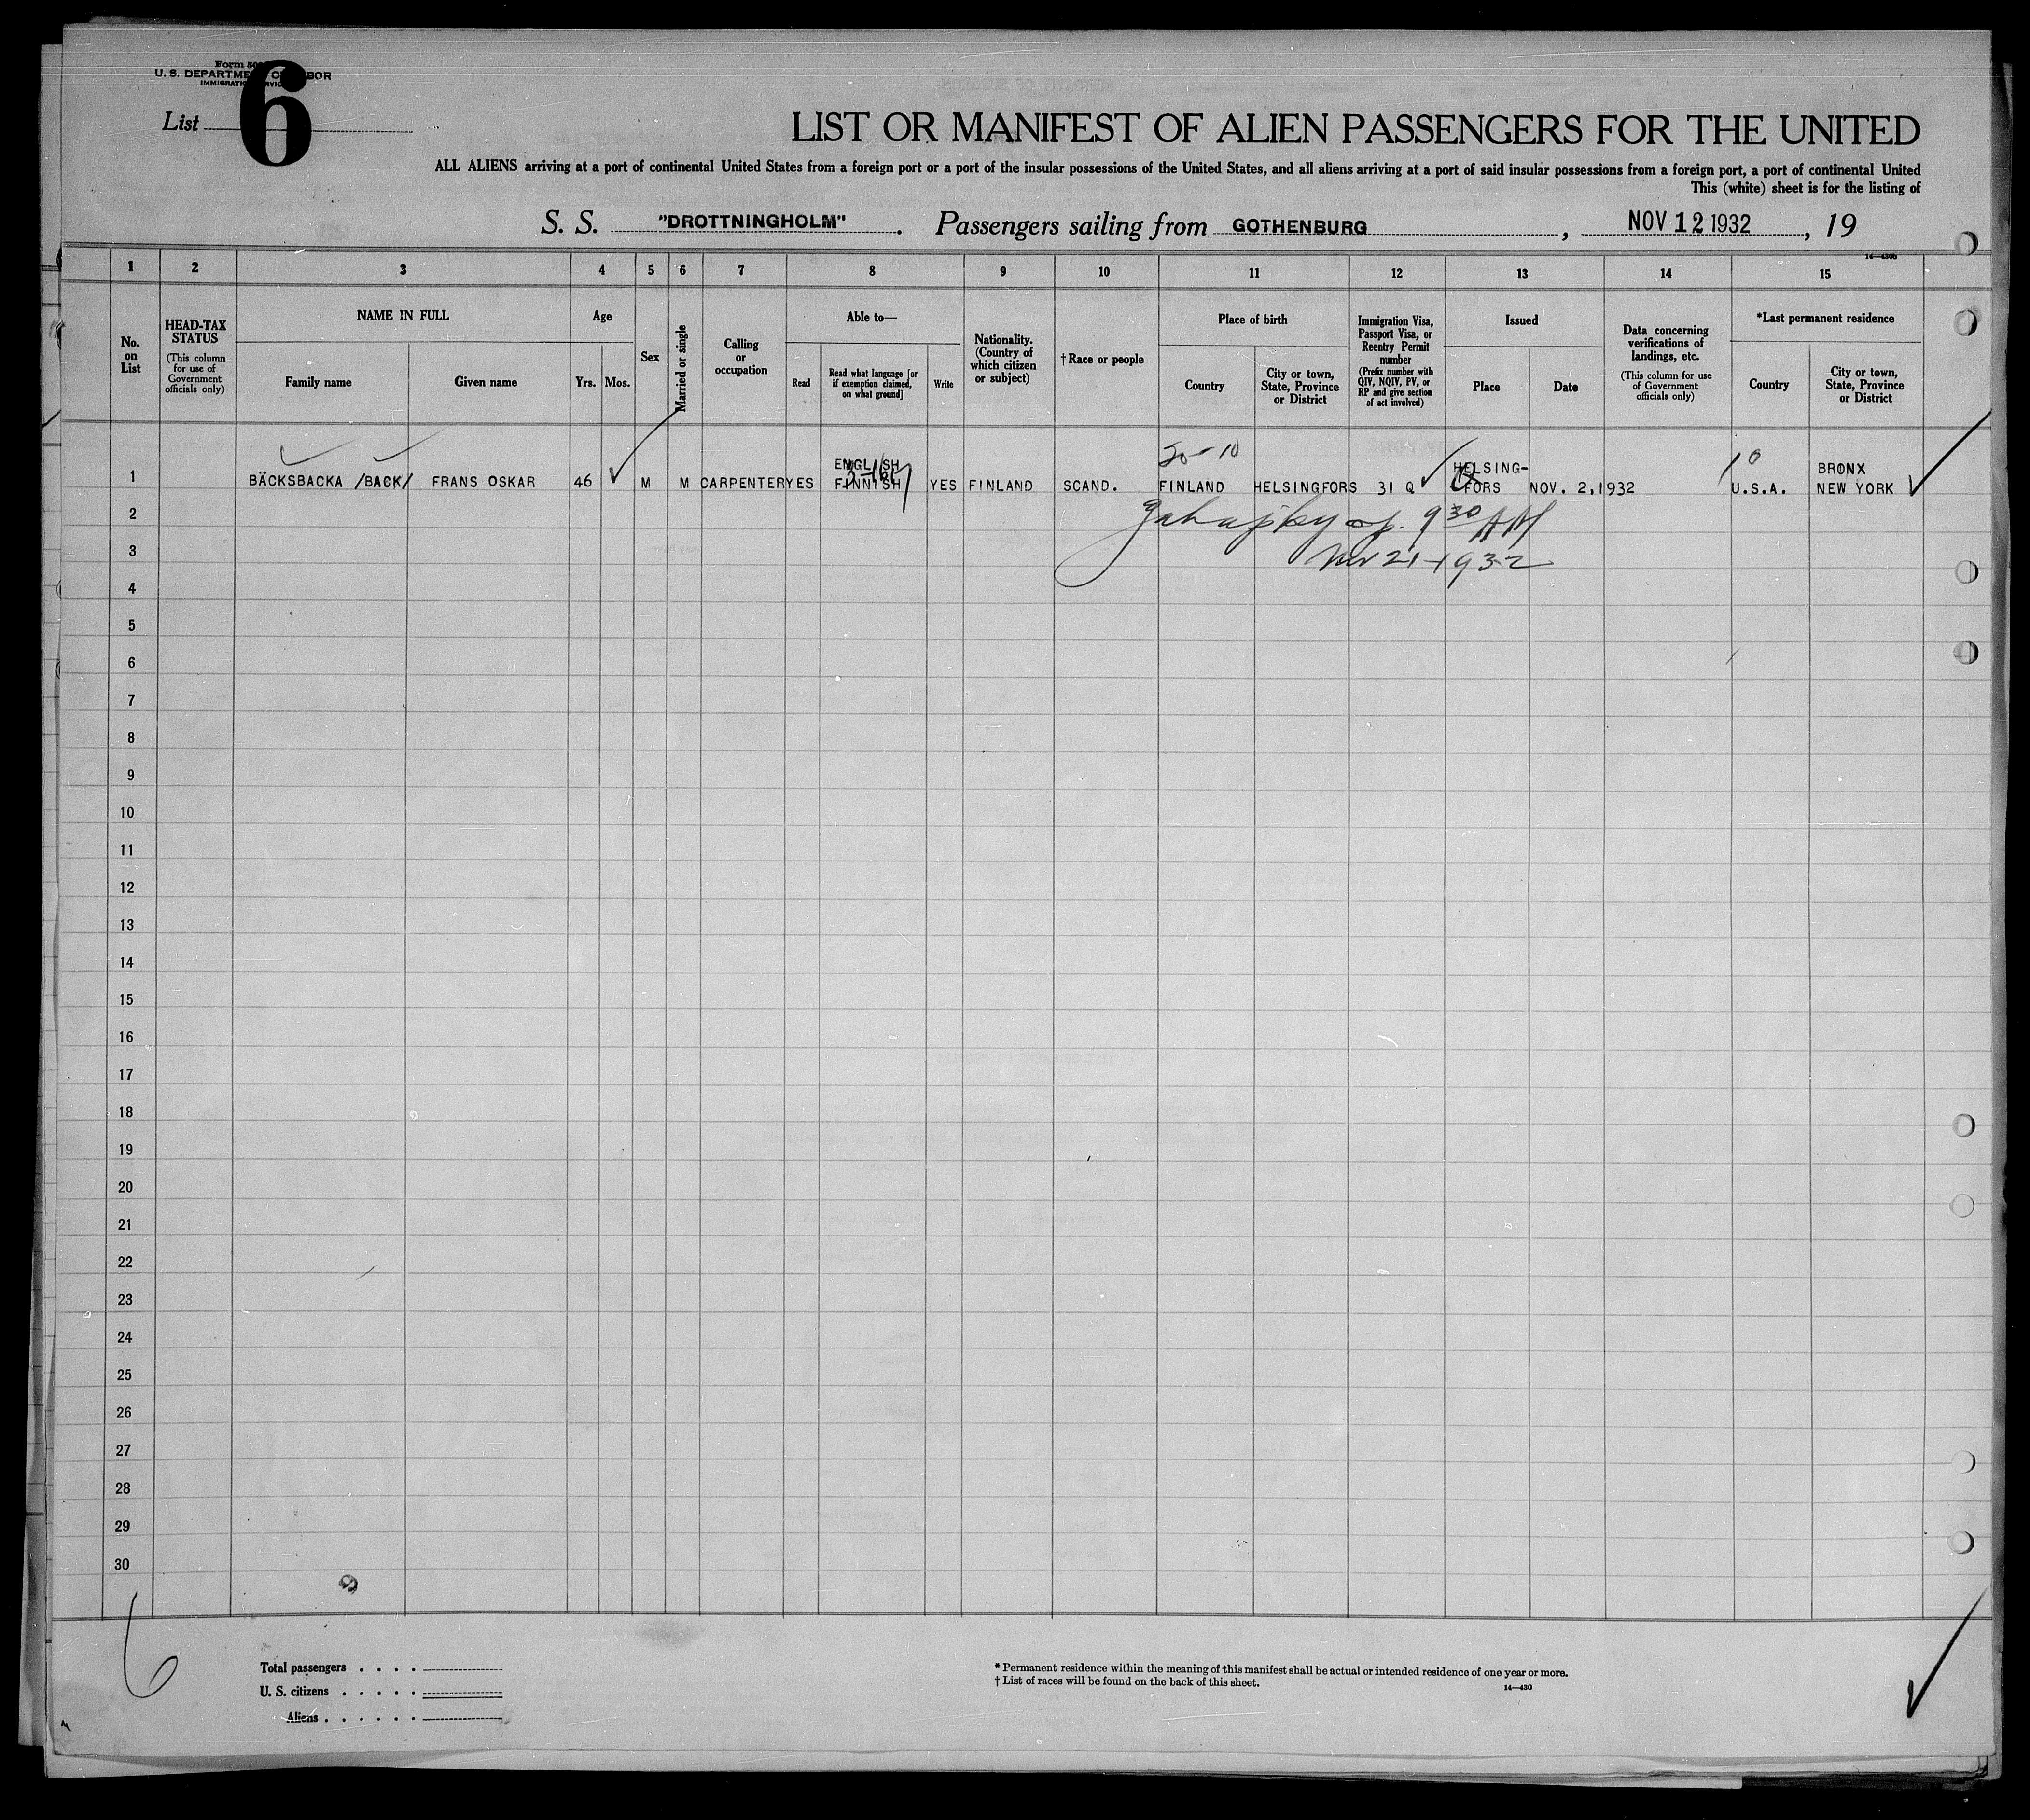 Form 500
U. S. DEPARTMENT OF LABOR
IMMIGRATION SERVICE
List 6
LIST OR MANIFEST OF ALIEN PASSENGERS FOR THE UNITED
ALL ALIENS arriving at a port of continental United States from a foreign port or a port of the insular possessions of the United States, and all aliens arriving at a port of said insular possessions from a foreign port, a port of continental United
This (white) sheet is for the listing of
S. S. "DROTTNINGHOLM". Passengers sailing from GOTHENBURG, NOV 12 1932, 19
14—430b
1 2 3 4 5 6 7 8 9 10 11 12 13 14 15
No. on List
HEAD-TAX STATUS
(This column for use of Government officials only)
NAME IN FULL
Family name
Given name
Age
Yrs. Mos.
Sex
Married or single
Calling or occupation
Able to—
Read
Read what language [or if exemption claimed, on what ground]
Write
Nationality. (Country of which citizen or subject)
†Race or people
Place of birth
Country
City or town, State, Province or District
Immigration Visa, Passport Visa, or Reentry Permit number
(Prefix number with QIV, NQIV, PV, or RP and give section of act involved)
Issued
Place
Date
Data concerning verifications of landings, etc.
(This column for use of Government officials only)
*Last permanent residence
Country
City or town, State, Province or District
1 BÄCKSBACKA /BACK/ FRANS OSKAR 46 M M CARPENTER YES ENGLISH FINNISH YES FINLAND SCAND. FINLAND HELSINGFORS 31 Q HELSING-FORS NOV. 2,1932 U.S.A. BRONX NEW YORK
9 30 AM
Nov 21-1932
2
3
4
5
6
7
8
9
10
11
12
13
14
15
16
17
18
19
20
21
22
23
24
25
26
27
28
29
30
6
Total passengers . . . .
U. S. citizens . . . . .
Aliens . . . . . .
* Permanent residence within the meaning of this manifest shall be actual or intended residence of one year or more.
† List of races will be found on the back of this sheet.
14—430